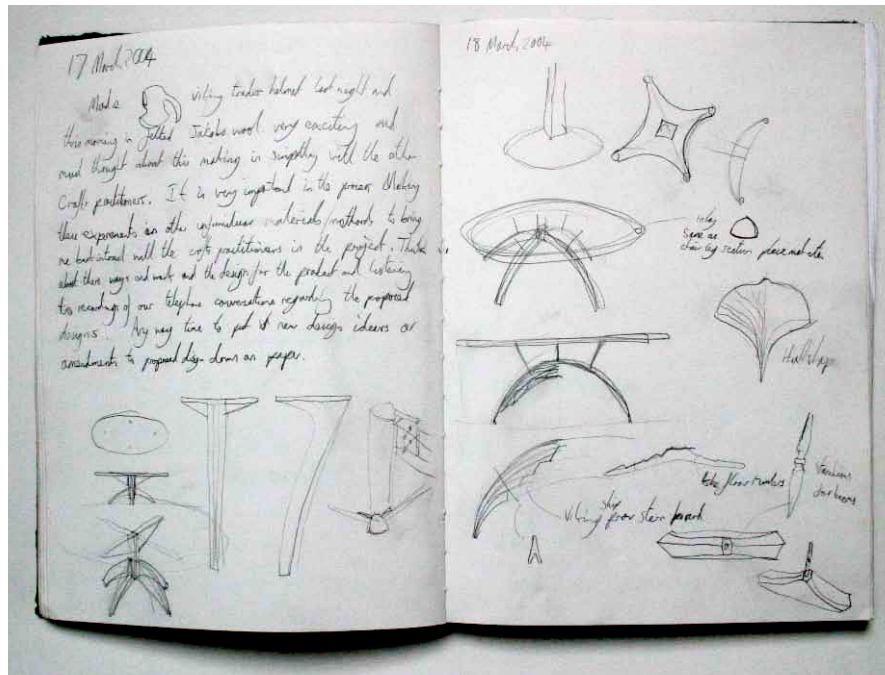 17 March 2004
Made viking trader helmet last night and
this morning in felted Jakobs wool. very exciting and
much thought about this making in simpathy with the other
Craft practitioners. It is very important in the process Making
these experiments in other unfamiliar materials/methods to bring
me back intouch with the craft practitioners in the project. Thinking
about there ways and marks and the design for the product and listening
too recordings of our telephone conversations regarding the proposed
designs. Any way time to put new design ideers or
amendments to proposed design down on paper.
18 March 2004
inlay
Same as
chair leg section place mat
Hull shape
Viking ship prow stern